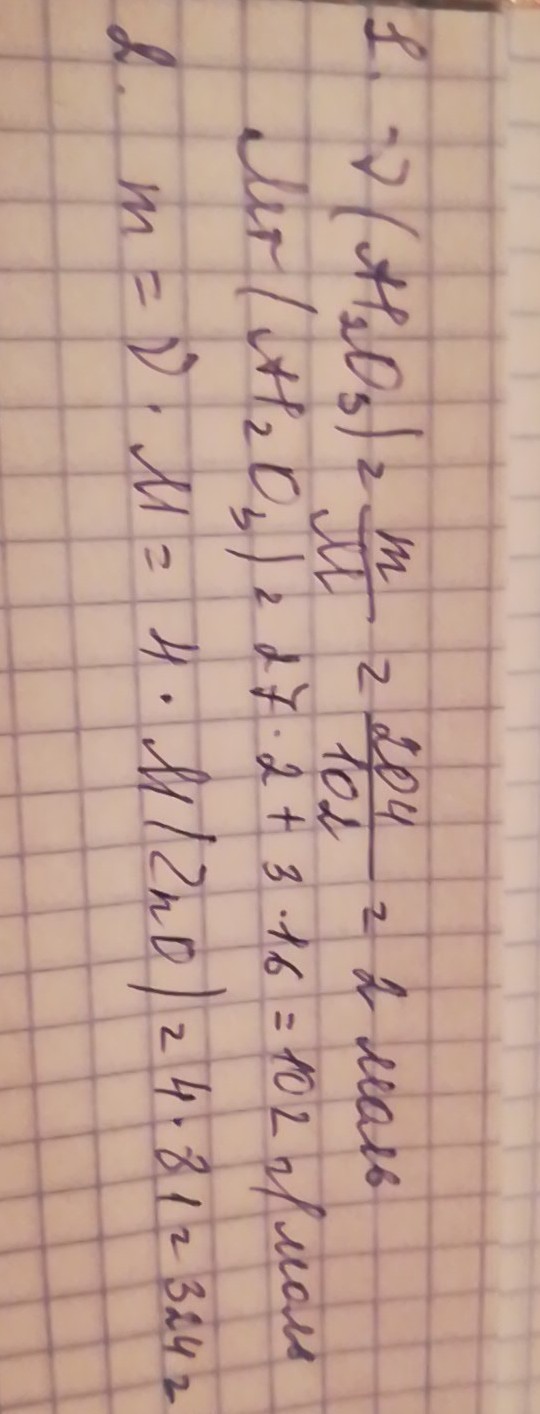 1. ν(Al₂O₃) = m/M = 204/102 = 2 моль
Mr(Al₂O₃) = 27·2 + 3·16 = 102 г/моль
2. m = ν·M = 4·M(ZnO) = 4·81 = 324 г